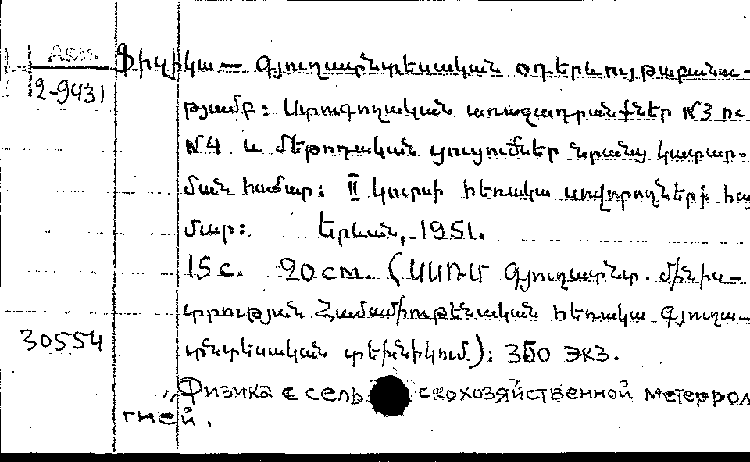 Ֆիզիկա — Գյուղատնտեսական օդերևութաբանա-
2-9431
թյամբ: Ստուգողական առաջադրանքներ №3 ու
№4 և մեթոդական ցուցումներ նրանց կատար-
ման համար: II կուրսի հեռակա սովորողների հա
մար: Երևան, 1951.
15 с. 20 см. (ՍՍՌՄ Գյուղատնտ. մինիս-
տրության Համամիութենական հեռակա գյուղա-
30554
տնտեսական տեխնիկում): 350 экз.
„Физика с сельскохозяйственной метеорол
гией.